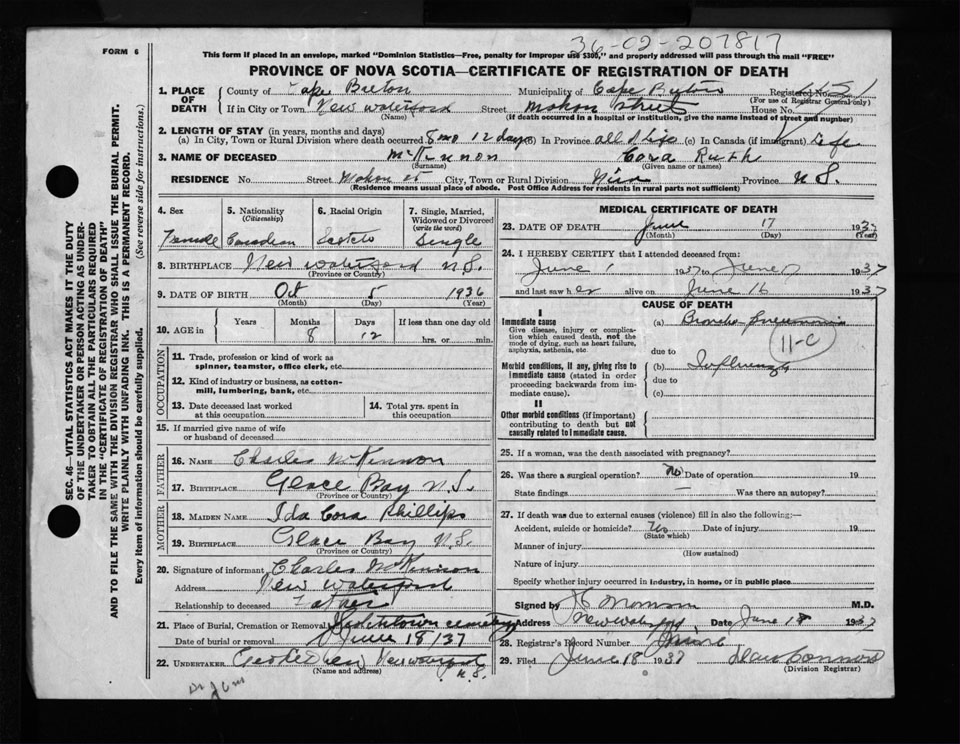 36-02-207817
FORM 6
This form if placed in an envelope, marked "Dominion Statistics—Free, penalty for improper use $300," and properly addressed will pass through the mail "FREE"
PROVINCE OF NOVA SCOTIA—CERTIFICATE OF REGISTRATION OF DEATH
1. PLACE OF DEATH
County of Cape Breton Municipality of Cape Breton Registered No.
(For use of Registrar General only)
If in City or Town New Waterford Street Mahon Street House No.
(Name) (If death occurred in a hospital or institution, give the name instead of street and number)
2. LENGTH OF STAY (in years, months and days)
(a) In City, Town or Rural Division where death occurred 8 mo 12 days (b) In Province all of Life (c) In Canada (if immigrant) Life
3. NAME OF DECEASED McKinnon Cora Ruth
(Surname) (Given name or names)
RESIDENCE No. Street Mahon St City, Town or Rural Division Province N S.
(Residence means usual place of abode. Post Office Address for residents in rural parts not sufficient)
4. Sex
Female
5. Nationality
(Citizenship)
Canadian
6. Racial Origin
7. Single, Married, Widowed or Divorced
(write the word)
Single
8. BIRTHPLACE New Waterford N.S.
(Province or Country)
9. DATE OF BIRTH Oct 5 1936
(Month) (Day) (Year)
10. AGE in Years Months Days If less than one day old
8 12 hrs. or min.
OCCUPATION
11. Trade, profession or kind of work as spinner, teamster, office clerk, etc.
12. Kind of industry or business, as cotton-mill, lumbering, bank, etc.
13. Date deceased last worked at this occupation
14. Total yrs. spent in this occupation
15. If married give name of wife or husband of deceased
FATHER
16. NAME Charles McKinnon
17. BIRTHPLACE Glace Bay N.S.
(Province or Country)
MOTHER
18. MAIDEN NAME Ida Cora Phillips
19. BIRTHPLACE Glace Bay N.S.
(Province or Country)
20. Signature of informant Charles McKinnon
Address New Waterford
Relationship to deceased Father
21. Place of Burial, Cremation or Removal cemetery
Date of burial or removal June 18/37
22. UNDERTAKER New Waterford
(Name and address) N.S.
MEDICAL CERTIFICATE OF DEATH
23. DATE OF DEATH June 17 1937
(Month) (Day) (Year)
24. I HEREBY CERTIFY that I attended deceased from:
June 1 1937 to June 1937
and last saw her alive on June 16 1937
CAUSE OF DEATH
I
Immediate cause
Give disease, injury or complication which caused death, not the mode of dying, such as heart failure, asphyxia, asthenia, etc.
(a) Broncho Pneumonia
11-C
due to
Morbid conditions, if any, giving rise to immediate cause (stated in order proceeding backwards from immediate cause).
(b) Influenza
due to
(c)
II
Other morbid conditions (if important) contributing to death but not causally related to immediate cause.
25. If a woman, was the death associated with pregnancy?
26. Was there a surgical operation? No Date of operation 19
State findings — Was there an autopsy?
27. If death was due to external causes (violence) fill in also the following:—
Accident, suicide or homicide? No Date of injury 19
(State which)
Manner of injury
(How sustained)
Nature of injury
Specify whether injury occurred in industry, in home, or in public place
Signed by M.D.
Address New Waterford Date June 18 1937
28. Registrar's Record Number
29. Filed June 18 1937
(Division Registrar)
SEC. 46—VITAL STATISTICS ACT MAKES IT THE DUTY
OF THE UNDERTAKER OR PERSON ACTING AS UNDERTAKER
TO OBTAIN ALL THE PARTICULARS REQUIRED
IN THE "CERTIFICATE OF REGISTRATION OF DEATH"
AND TO FILE THE SAME WITH THE DIVISION REGISTRAR WHO SHALL ISSUE THE BURIAL PERMIT.
WRITE PLAINLY WITH UNFADING INK. THIS IS A PERMANENT RECORD.
Every item of information should be carefully supplied. (See reverse side for instructions.)